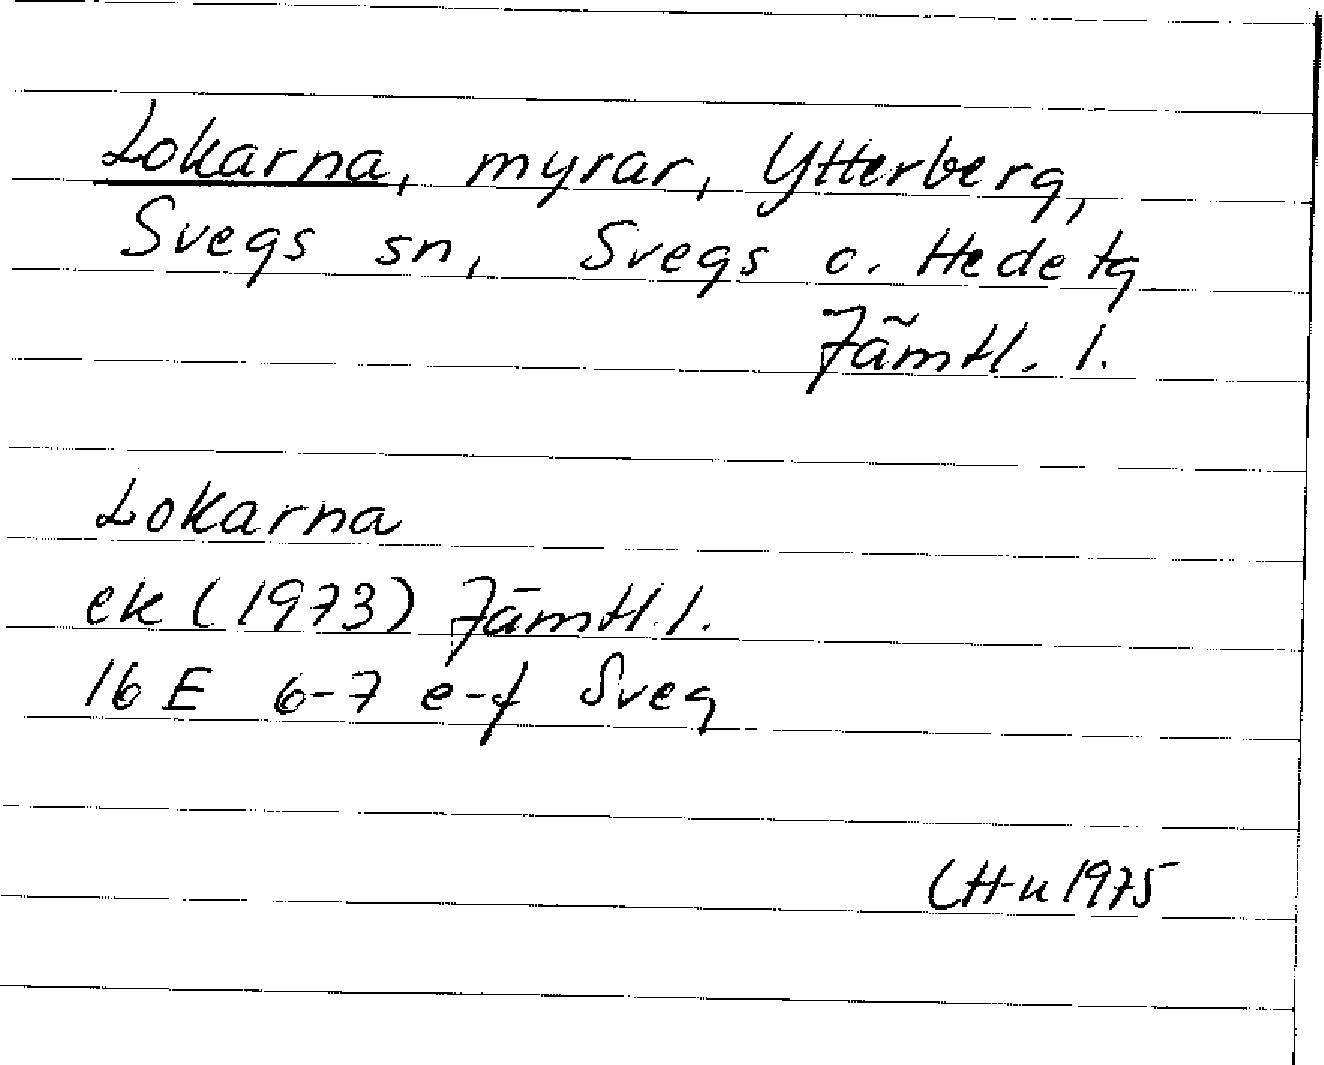 Lokarna, myrar, Ytterberg,
Svegs sn, Svegs o. Hede tg
Jämtl. l.
Lokarna
ek (1973) Jämtl. l.
16 E 6-7 e-f Sveg
CH-u 1975